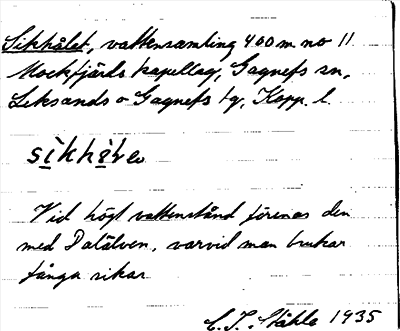 Sikhålet, vattensamling 400 m no 11
Mockfjärds kapellag, Gagnefs sn,
Leksands o Gagnefs tg, Kopp. l.
Vid högt vattenstånd förenas den
med Dalälven, varvid man brukar
fånga sikar
C. I. Ståhle 1935